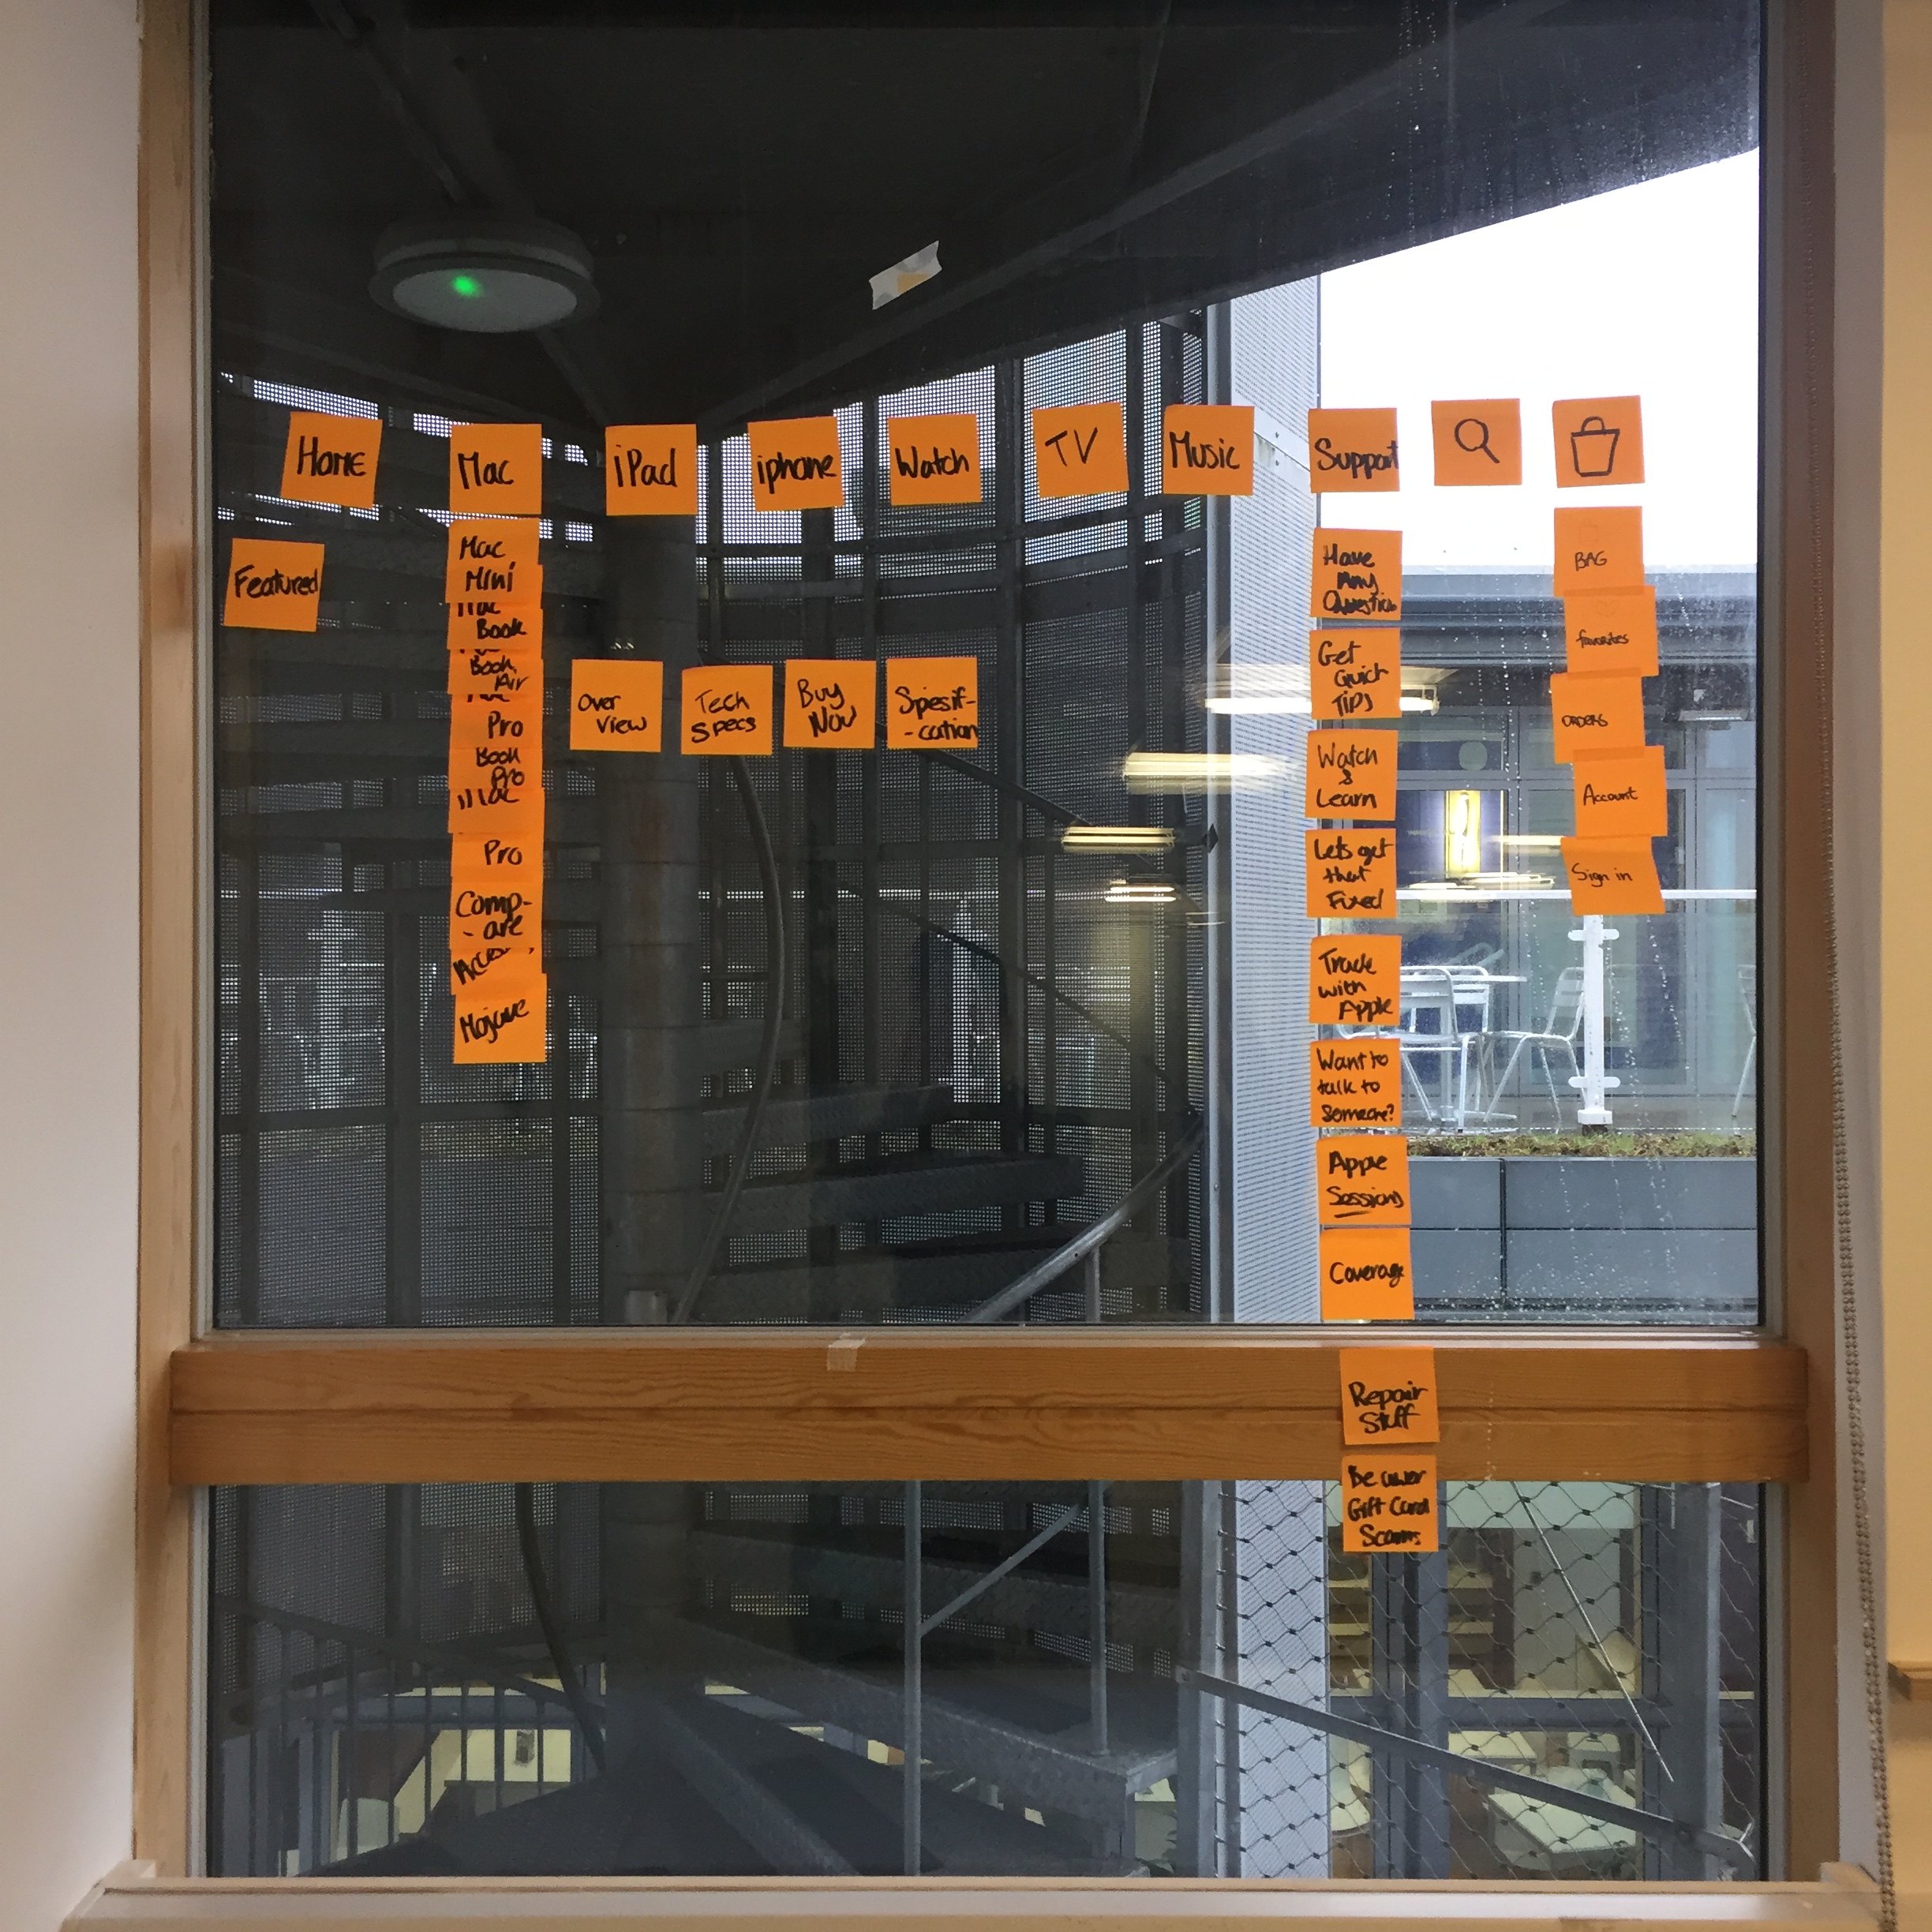 Home
Mac
iPad
iphone
Watch
TV
Music
Support
Featured
Mac
Mini
Book
Book
Air
Pro
Book
Pro
Pro
Comp-
- are
Mojave
Over
View
Tech
Specs
Buy
Now
Spesif-
- cation
Have
Any
Question
Get
Quick
Tips
Watch
&
Learn
Lets get
that
Fixed
with
Apple
Want to
talk to
Someone?
Apple
Sessions
Coverage
Repair
Stuff
Gift Card
Scams
BAG
favorites
ORDERS
Account
Sign in